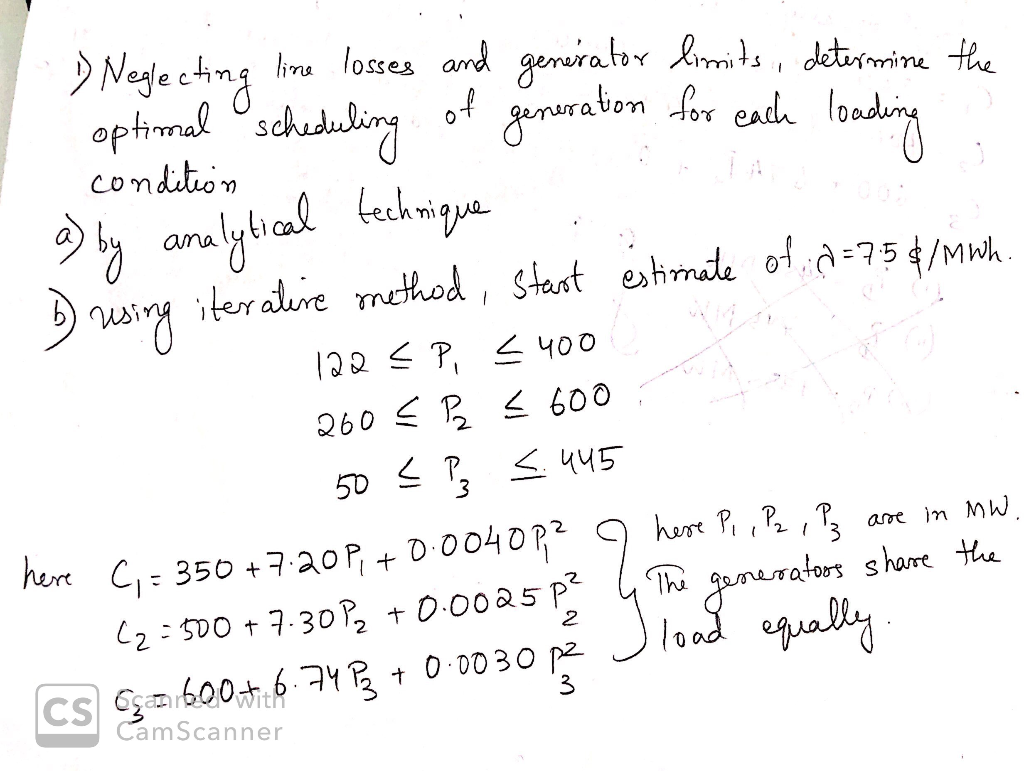 1) Neglecting line losses and generator limits, determine the
optimal scheduling of generation for each loading
condition
a) by analytical technique
b) using iterative method, Start estimate of λ=7.5 $/MWh.
122 ≤ P₁ ≤ 400
260 ≤ P₂ ≤ 600
50 ≤ P₃ ≤ 445
here C₁ = 350 + 7.20P₁ + 0.0040P₁² } here P₁, P₂, P₃ are in MW.
C₂ = 500 + 7.30P₂ + 0.0025P₂² The generators share the
C₃ = 600 + 6.74P₃ + 0.0030P₃² load equally.
CS Scanned with
CamScanner